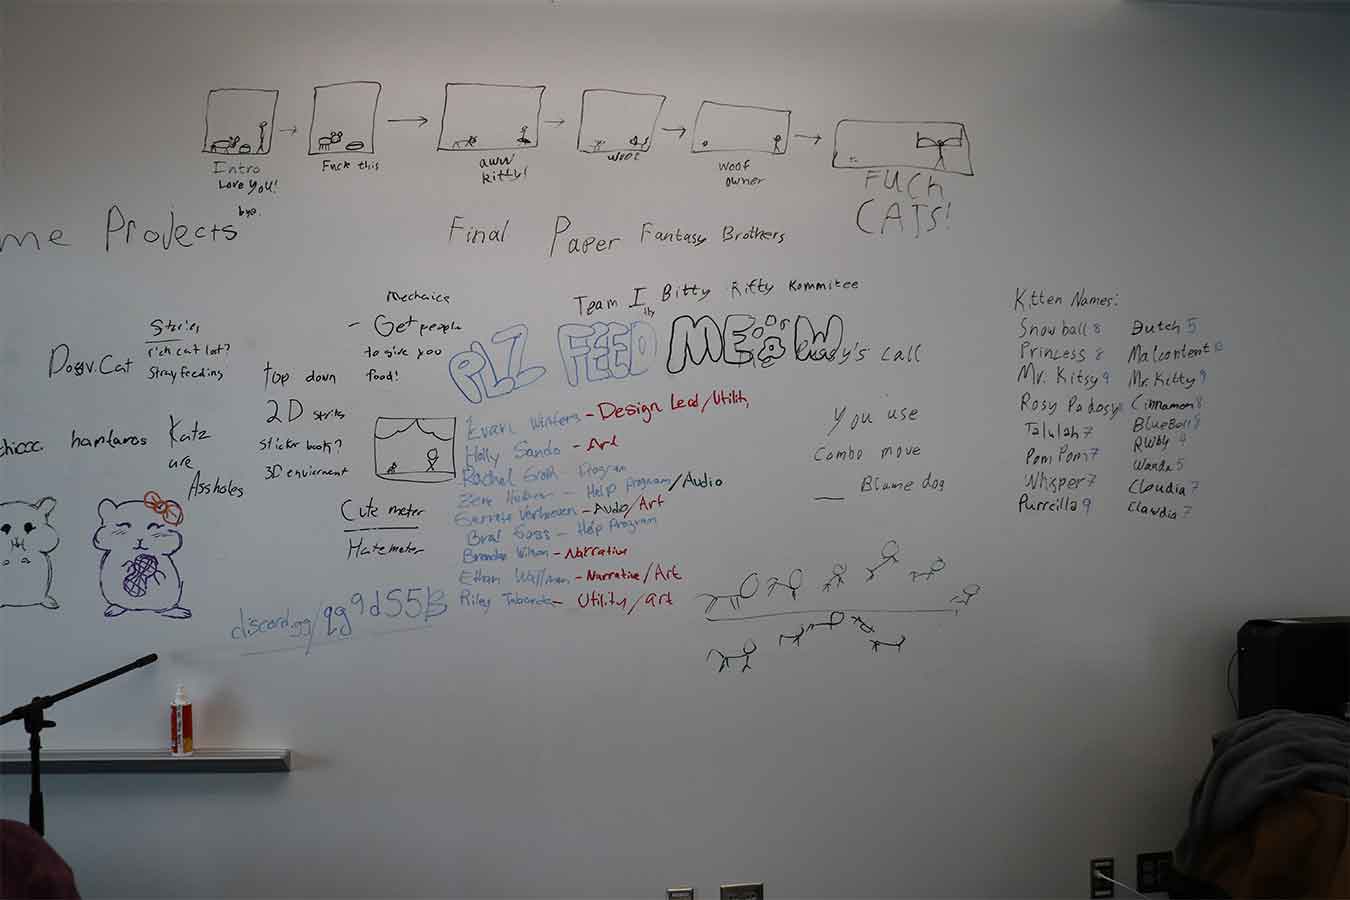 Intro
Love you!
bye.
Fuck this
aww
kitty!
woof
woof
owner
FUCK
CATS!
me Projects
Final Paper Fantasy Brothers
Mechanics
- Get people
to give you
food!
Stories
rich cat lost?
Stray feeding
Dog v. Cat
Team Itty Bitty Kitty Kommitee
PLZ FEED MEOW
call
top down
2D
sticker book?
3D
Katz
are
Assholes
Cute meter
Hate meter
- Design Lead/Utility
Holly Sando - Art
Rachel - Program
- Help program/Audio
- Audio/Art
- Help Program
Brandon Wilson - Narrative
Ethan - Narrative/Art
Riley - Utility/Art
discord.gg/
You use
Combo move
Blame dog
Kitten Names:
Snowball 8
Princess 8
Mr. Kitsy 9
Rosy
Talulah 7
Pom Pom 7
Whisper 7
Purrcilla 9
Dutch 5
Malcontent
Mr. Kitty 9
Cinnamon 8
Blue Ball 8
Rwby 4
Wanda 5
Claudia 7
Clawdia 7